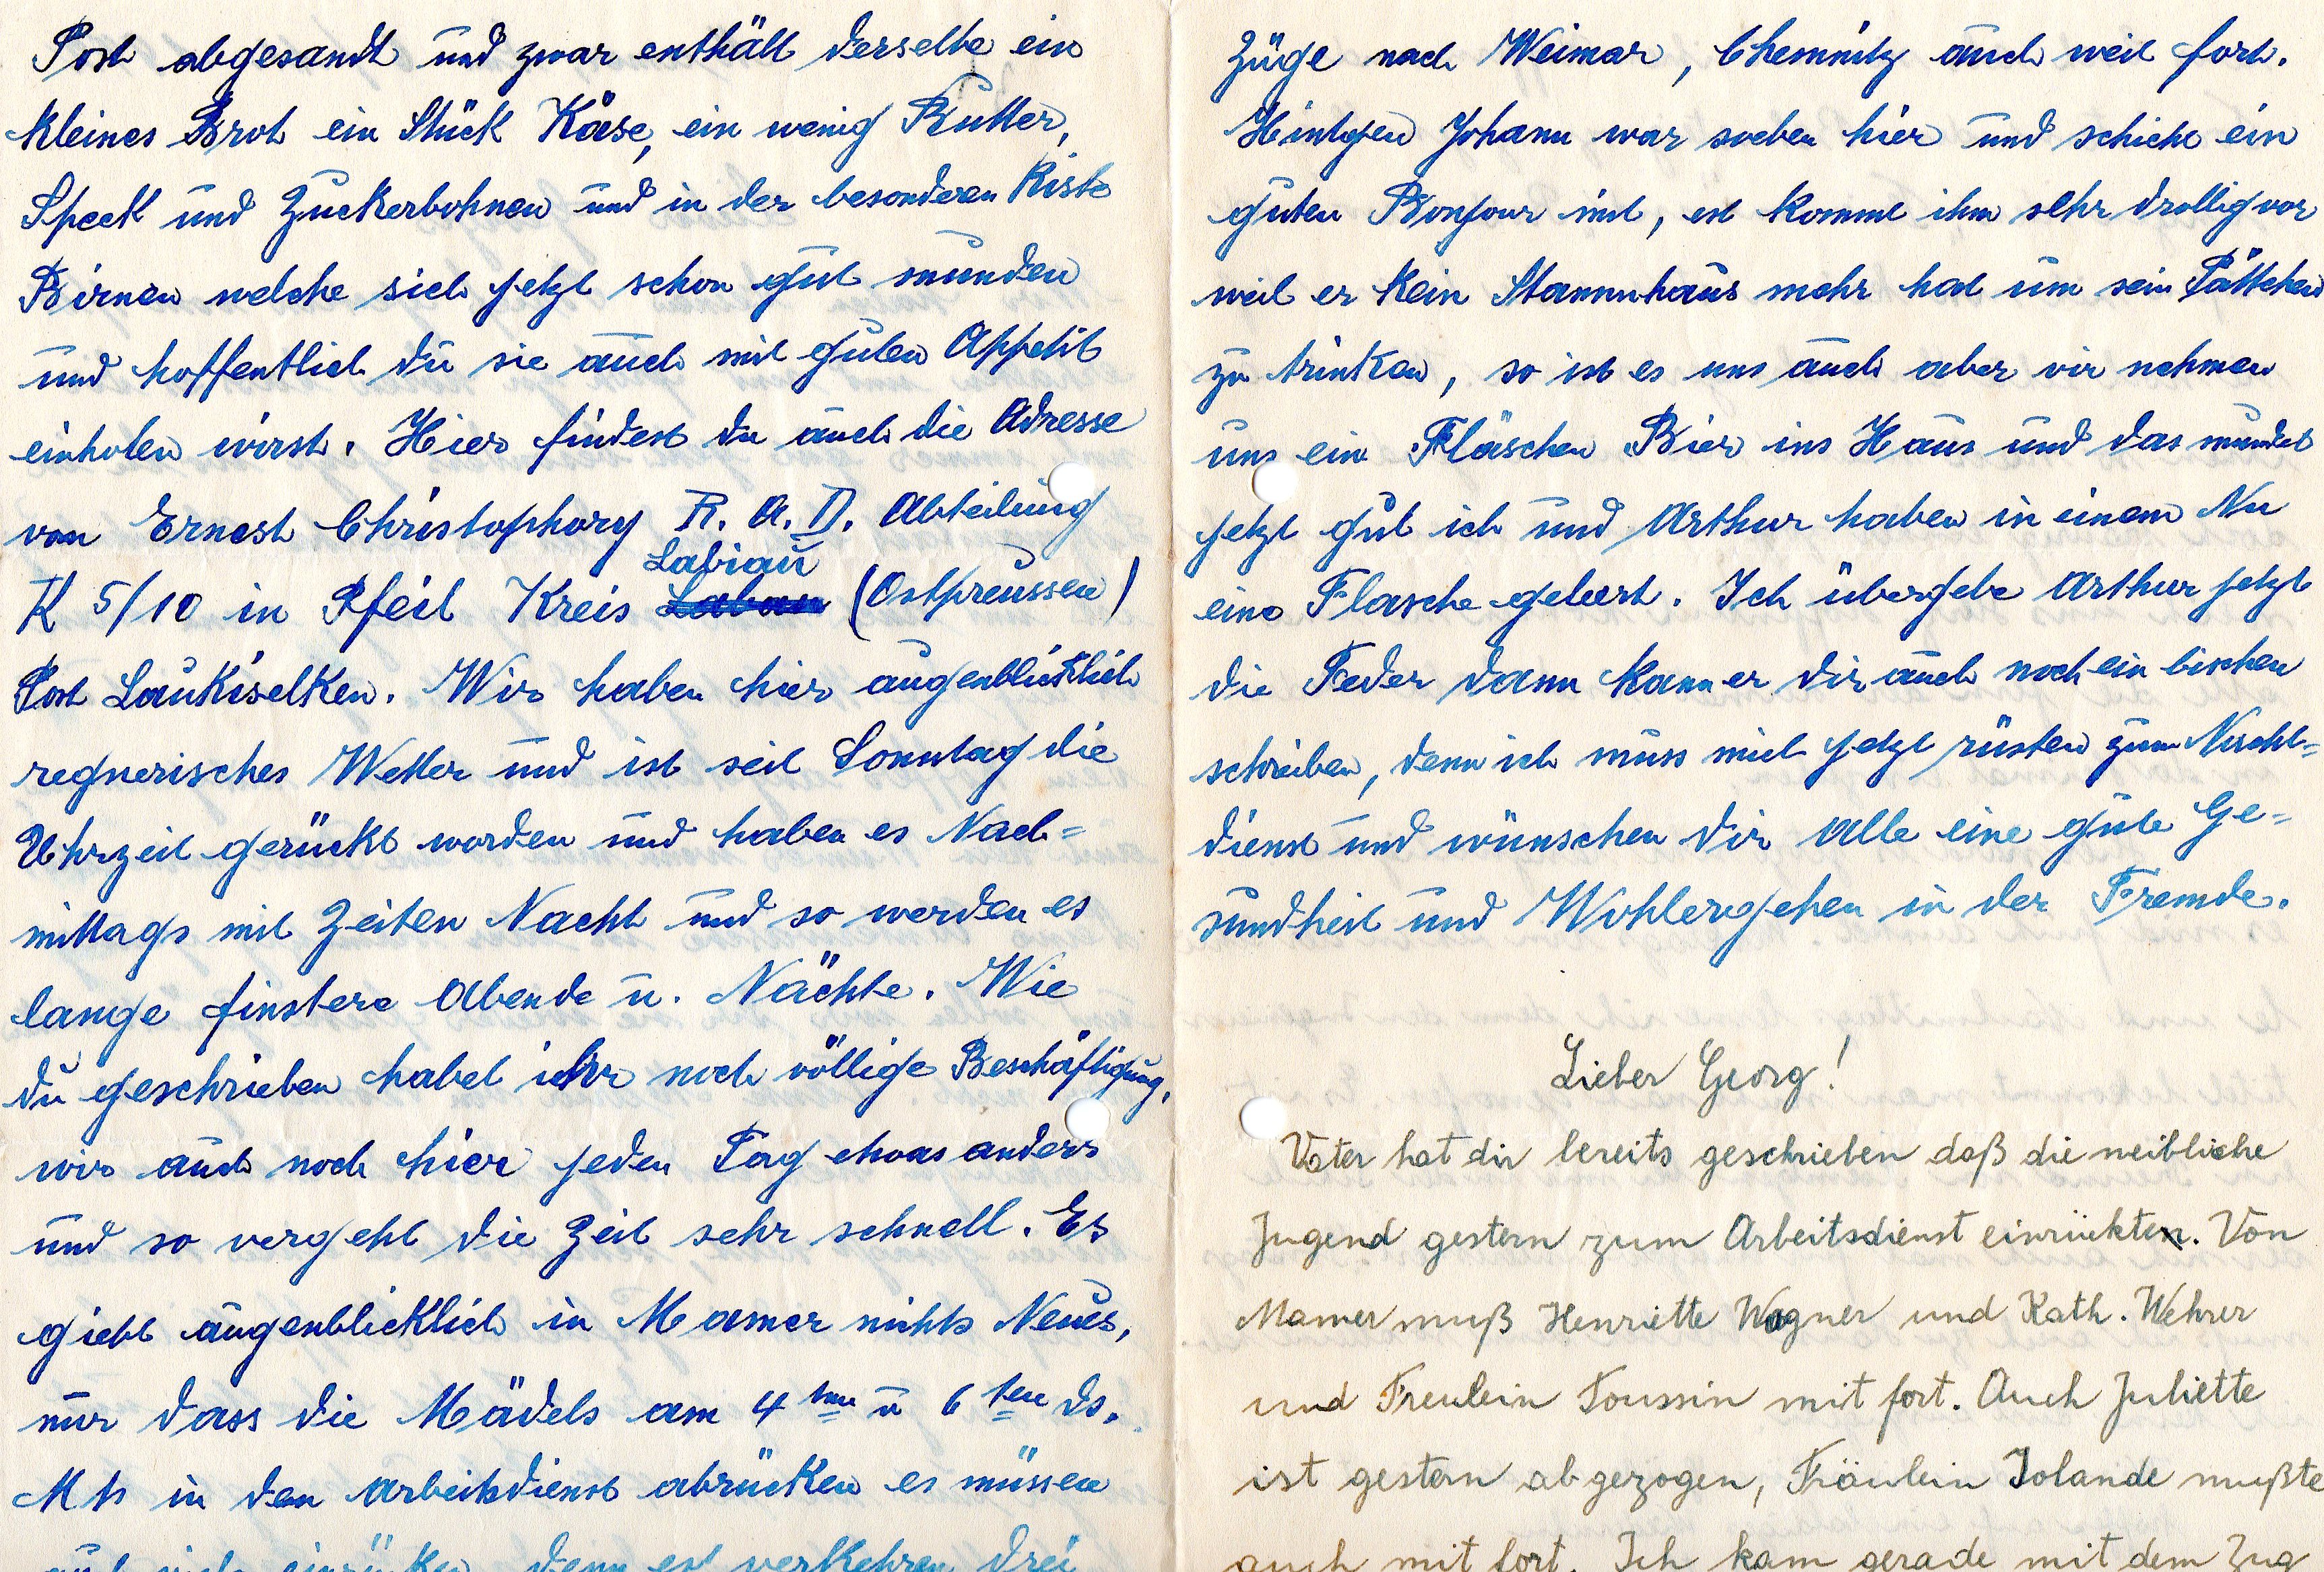 Post abgesandt und zwar enthält derselbe ein
kleines Brot ein Stück Käse, ein wenig Butter,
Speck und Zuckerbohnen und in der besonderen Kiste
Birnen welche sich jetzt schon gut munden
und hoffentlich du sie auch mit guten Appetit
einholen wirst. Hier findest du auch die Adresse
von Ernest Christophory R. A. D. Abteilung
Labiau
K 5/10 in Pfeil Kreis (Ostpreussen)
Post Laukiselken. Wir haben hier augenblicklich
regnerisches Wetter und ist seit Sonntag die
Uhrzeit gerückt worden und haben es Nach=
mittags mit Zeiten Nacht und so werden es
lange finstere Abende u. Nächte. Wie
du geschrieben habet ihr noch völlige Beschäftigung,
wir auch noch hier jeden Tag etwas anders
und so vergeht die Zeit sehr schnell. Es
giebt augenblicklich in Mamer nichts Neues,
nur dass die Mädels am 4ten u 6ten ds.
Mts in den Arbeitsdienst abrücken es müssen
einrücken denn est verkehren drei
Züge nach Weimar, Chemnitz auch weit fort.
Johann war soeben hier und schickt ein
guten Bonjour mit, est kommt ihm sehr drollig vor
weil er kein Stammhaus mehr hat um sein Pättchen
zu trinken, so ist es uns auch aber wir nehmen
uns ein Fläschen Bier ins Haus und das mundet
jetzt gut ich und Arthur haben in einem Nu
eine Flasche geleert. Ich übergebe Arthur jetzt
die Feder dann kann er dir auch noch ein bischen
schreiben, denn ich muss mich jetzt rüsten zum Nacht=
dienst und wünschen dir Alle eine gute Ge=
sundheit und Wohlergehen in der Fremde.
Lieber Georg!
Vater hat dir bereits geschrieben daß die weibliche
Jugend gestern zum Arbeitsdienst einrückte. Von
Mamer muß Henriette Wagner und Kath. Wehrer
und Freulein Toussin mit fort. Auch Juliette
ist gestern abgezogen, Fräulein Jolande mußte
auch mit fort. Ich kam gerade mit dem Zug